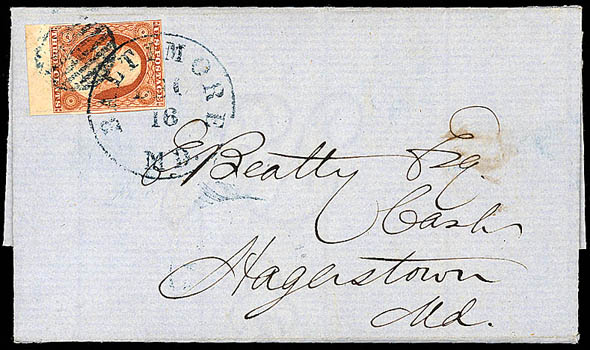 BALTIMORE
16
MD
E Beatty Esq.
Cash
Hagerstown
Md.